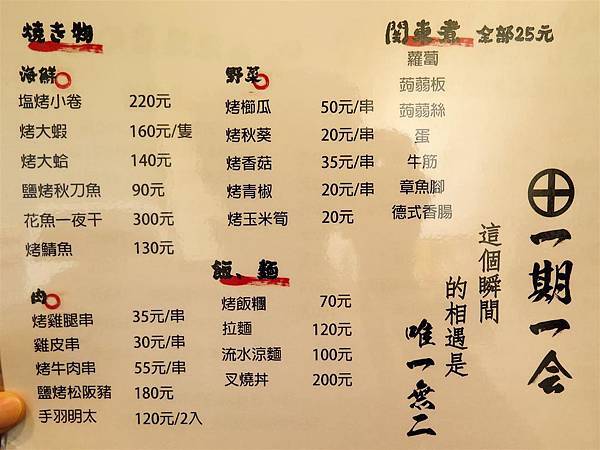 焼き物
海鮮
塩烤小卷 220元
烤大蝦 160元/隻
烤大蛤 140元
鹽烤秋刀魚 90元
花魚一夜干 300元
烤鯖魚 130元
肉
烤雞腿串 35元/串
雞皮串 30元/串
烤牛肉串 55元/串
鹽烤松阪豬 180元
手羽明太 120元/2入
野菜
烤櫛瓜 50元/串
烤秋葵 20元/串
烤香菇 35元/串
烤青椒 20元/串
烤玉米筍 20元
飯、麵
烤飯糰 70元
拉麵 120元
流水涼麵 100元
叉燒丼 200元
関東煮 全部25元
蘿蔔
蒟蒻板
蒟蒻絲
蛋
牛筋
章魚腳
德式香腸
一期一会
這個瞬間
的相遇是
唯一無二